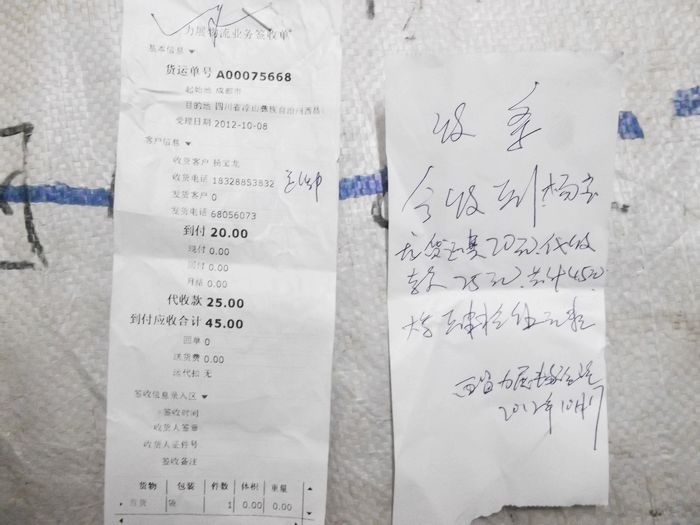 力展物流业务签收单
基本信息 ▼
货运单号 A00075668
起始地 成都市
目的地 四川省凉山彝族自治州西昌
受理日期 2012-10-08
客户信息 ▼
收货客户 杨宝龙
收货电话 18328853832
发货客户 0
发货电话 68056073
到付 20.00
现付 0.00
回付 0.00
月结 0.00
代收款 25.00
到付应收合计 45.00
回单 0
送货费 0.00
运代扣 无
签收信息录入区 ▼
签收时间
收货人签章
收货人证件号
签收备注
货物 包装 件数 体积 重量
百货 袋 1 0.00 0.00
收条
今收到杨宝
龙货运费20元、代收
款25元、共计45元
大写：肆拾伍元整
西昌力展物流公司
2012年10月17